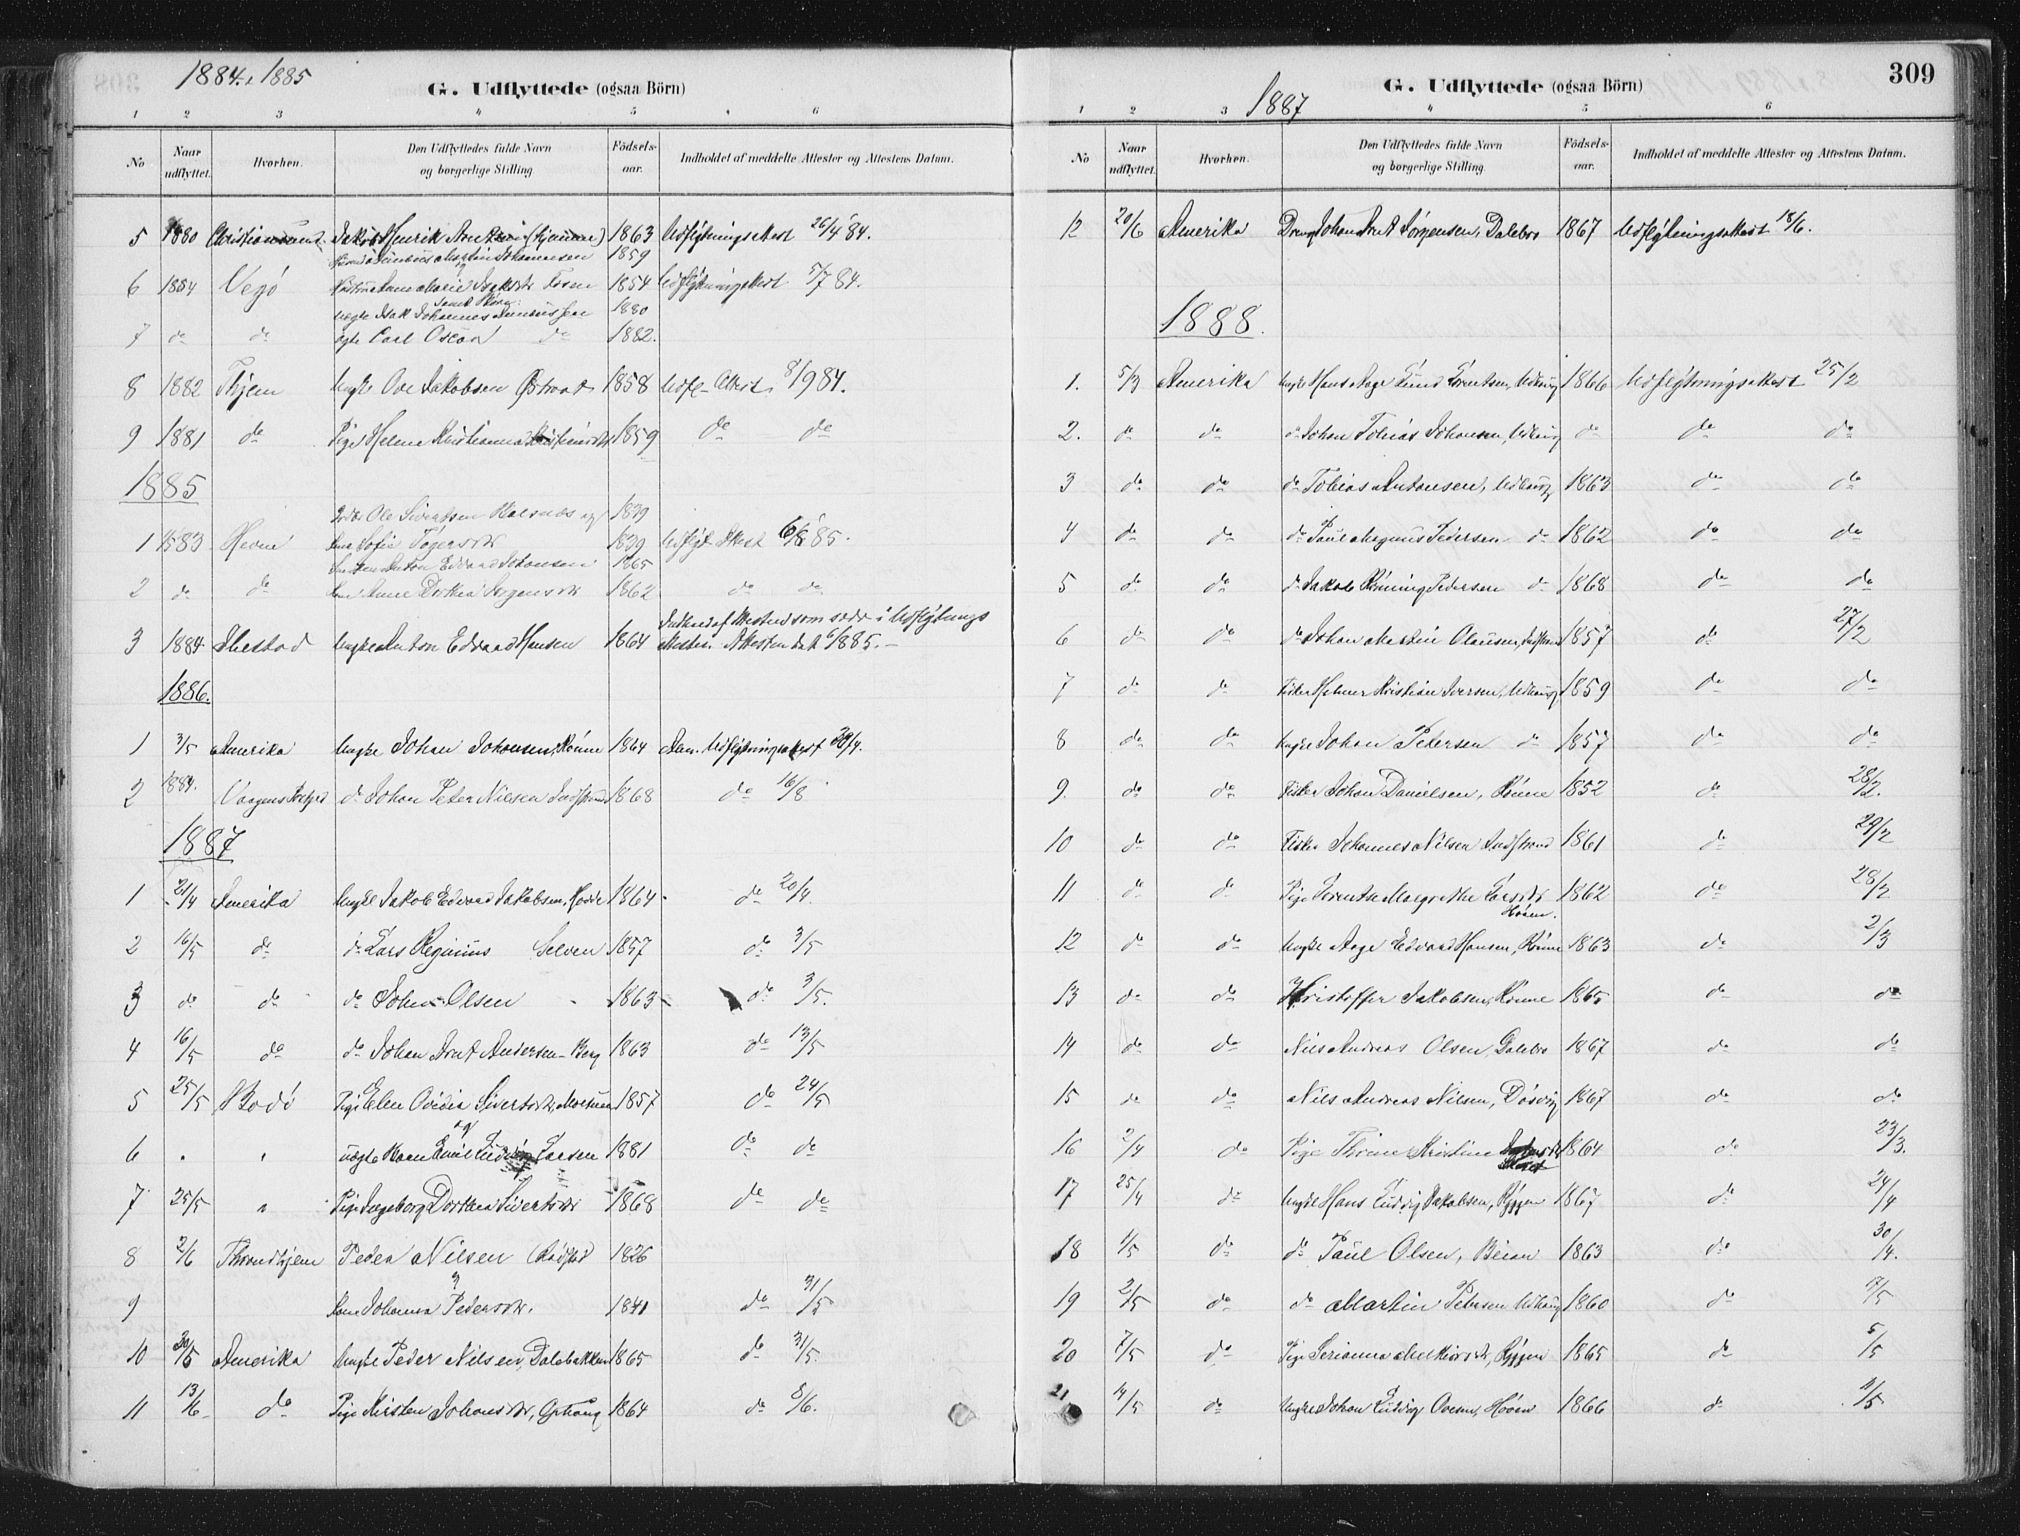 1884. & 1885
G. Udflyttede (ogsaa Börn)
1 2 3 4 5 6
No
Naar udflyttet.
Hvorhen.
Den Udflyttedes fulde Navn og borgerlige Stilling
Födsels-aar.
Indholdet af meddelte Attester og Attestens Datum.
5 1880 Christiansund Jakob Henrik 1863 Udflytningsattest 26/4 84.
Martin Johannesen 1859
6 1884 Vegö Anna Marie 1854 Udflytningsattest 5/7 84.
Isak Johannes 1880
7 do do ægte Carl Oscar do 1882.
8 1882 Thjem Ungkr Ove Jakobsen Östraat 1858 Udfl. Attest 8/9 84.
9 1881 do Pige Helene Kristianna 1859 do do
1885
Ole Sivertsen og 1839
1 1583 Hevne Sofie 1839 Udflyt. Attest 6/8 85.
Anton Edvard Johansen 1865
2 do do Anne Dorthea Jörgensdtr 1862 do do
Indhold af Attesten som sedv. i Udflytnings
3 1884 Ungkr Anton Edvard Hansen 1864 Attester. Attesten dat 1885.
1886.
1 3/5 Amerika Ungkr Johan Johansen, Rönne 1864 Alm. Udflytningsattest 29/4.
2 1884. do Johan Peter Nielsen 1868 do 16/8
1887
1 21/4 Amerika Ungkr Jakob Edvard Jakobsen, Hovde 1864 do 20/4
2 16/5 do do Lars Reginius Selven 1857 do 3/5
3 do do do John Olsen 1863 do 3/5.
4 16/5 do do Johan Arnt Andersen Berg 1863 do 13/5
5 25/5 Bodö Pige Elen Ovidia Sivertsdtr, 1857 do 24/5
og
6 " " uægte Barn Emil Ludvig Larsen 1881 do do
7 25/5 " Pige Ingeborg Dorthea Sivertsdtr 1868 do do
8 2/6 Throndhjem Peder Nilsen 1826
9 Kone Johanna Pedersdtr. 1841 do 31/5
10 20/5 Amerika Ungkr Peder Nilsen, Dalebakken 1865 do 31/5.
11 13/6 do Pige Kirsten Johansdtr, Ophaug 1864 do 8/6.
309
G. Udflyttede (ogsaa Börn)
1887
1 2 3 4 5 6
No
Naar udflyttet.
Hvorhen.
Den Udflyttedes fulde Navn og borgerlige Stilling.
Födsels-aar.
Indholdet af meddelte Attester og Attestens Datum.
12 20/6 Amerika Dreng Johan Arnt Jörgensen, Dalebro 1867 Udflytningsattest 18/6.
1888.
1. 5/3 Amerika Ungkr Hans Aage Lund Lorentsen, Udhaug 1866 Udflytningsattest 25/2
2. do do do Johan Tobias Johansen, Udhaug do do do
3 do do do Tobias Antonsen, Udhaug 1863 do do
4 do do do Paul Magnus Pedersen do 1862 do do
5 do do do Jakob Rönning Pedersen do 1868 do do
6 do do do Johan Martin Olausen, Indstrand 1857 do 27/2
7 do do Fisker Helmer Kristian Iversen, Udhaug 1859 do do
8 do do Ungkr Johan Petersen do 1857 do do
9. do do Fisker Johan Danielsen, Rönne 1852 do 28/2.
10 do do Fisker Johannes Nilsen Indstrand 1861 do 29/2
11 do do Pige Lorentse Margrethe Larsdtr 1862 do 28/2
Höien.
12 do do Ungkr Aage Edvard Hansen, Rönne 1863 do 2/3
13 do do Kristoffer Jakobsen, Rönne 1865 do do
14 do do Nils Andreas Olsen, Dalebro 1867 do do
15 do do Nils Andreas Nilsen, Dösvig 1867 do do
16 2/4 do Pige Thrine Kristine 1864 do 23/3.
17 25/4 do Ungkr Hans Ludvig Jakobsen, Ryggen 1867 do 24/4
18 1/5 do do Paul Olsen, Beian 1863 do 30/4.
19 2/5 do do Martin Petersen Udhaug 1860 do 7/5
20 7/5 do Pige Serianna Melkiorsdtr, Ryggen 1865 do 5/5
21 14/5 do Ungkr Johan Ludvig Ovesen, Höien 1866 do 11/5